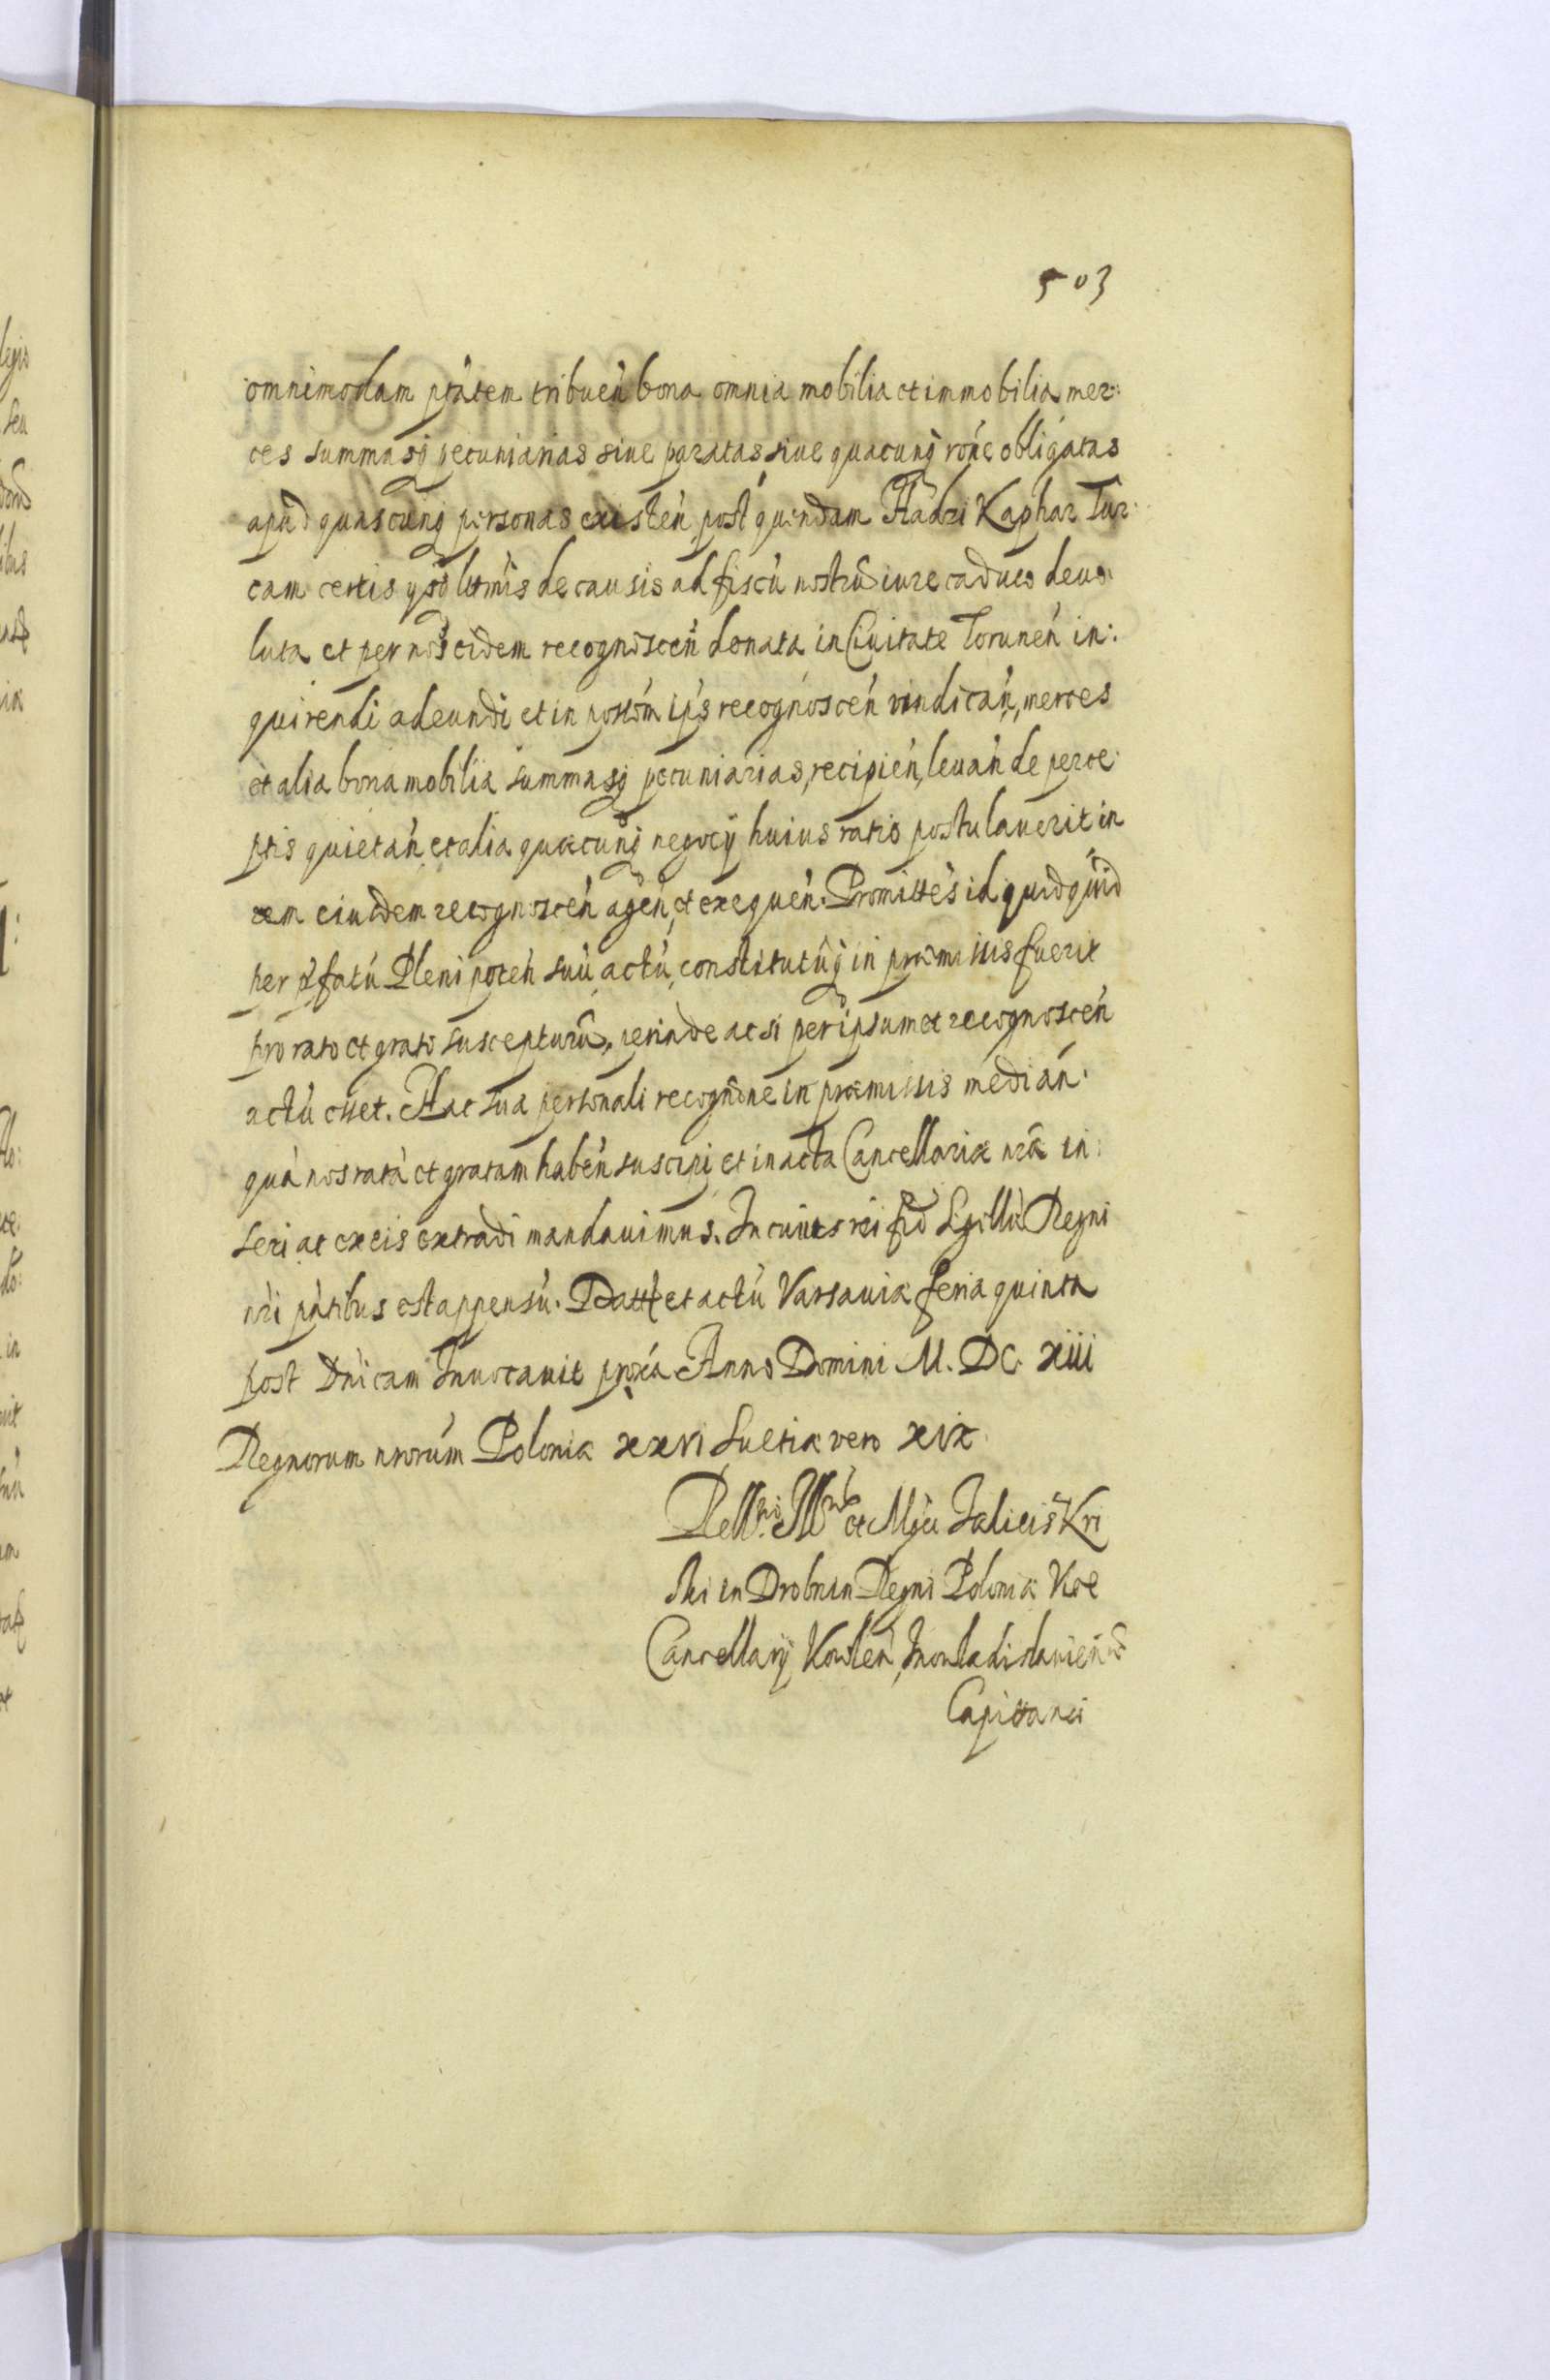 503
omnimodam ptatem tribuen bona omnia mobilia et immobilia mer:
ces summasq pecuniarias siue paratas siue quacunq rone obligatas
apud quascunq personas existen post quendam Hadzi Kaphar Tur:
cam certis ysq ltmis de causis ad fiscu nostru iure caduco deuo:
luta et per nos eidem recognoscen donata in Ciuitate Torunen in:
quirendi adeundi et in possom ips recognoscen vindican, merces
et alia bona mobilia summasq pecuniarias, recipien, leuan de perce:
ptis quietan et alia quæcunq negocy huius ratio postulauerit in
rem eiusdem recognoscen agen, et exequen. Promittes id quidquid
per pfatu Plenipoten suu actu, constitutuq in præmissis fuerit
pro rato et grato suscepturu, perinde ac si per ipsummet recognoscen
actu esset. Hac sua personali recognone in præmissis median:
qua nos rata et gratam haben suscipi et in acta Cancellariæ nræ in:
seri ac ex eis extradi mandauimus. In cuius rei fid Sigillu Regni
nri pntibus est appensu. Datt et actu Varsauiæ feria quinta
post Dnicam Inuocauit proxa Anno Domini M. DC. xiii
Regnorum nrorum Poloniæ xxvi Suetiæ vero xix
Relltio Illris et Mgci Felicis Kri
ski in Drobnin Regni Poloniæ Vice
Cancellary Kowlen, Inowladislauien
Capittanei